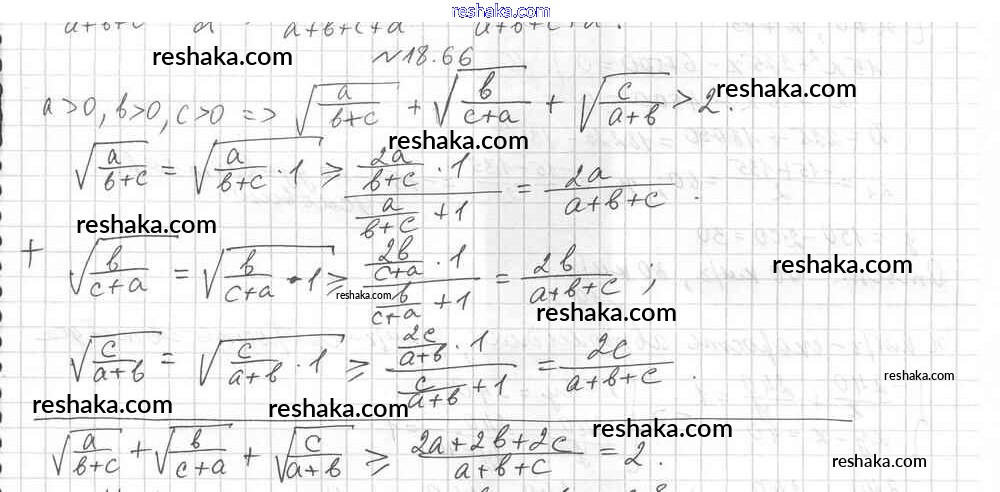 reshaka.com
a+b+c a a+b+c+a a+b+c+a .
reshaka.com №18.66
a>0, b>0, c>0 => √(a/(b+c)) + √(b/(c+a)) + √(c/(a+b)) > 2. reshaka.com
reshaka.com
√(a/(b+c)) = √(a/(b+c) · 1) ≥ (2a/(b+c) · 1)/(a/(b+c) + 1) = 2a/(a+b+c) .
reshaka.com
+ √(b/(c+a)) = √(b/(c+a) · 1) ≥ (2b/(c+a) · 1)/(b/(c+a) + 1) = 2b/(a+b+c) ; reshaka.com
reshaka.com
reshaka.com
√(c/(a+b)) = √(c/(a+b) · 1) ≥ (2c/(a+b) · 1)/(c/(a+b) + 1) = 2c/(a+b+c) . reshaka.com
reshaka.com reshaka.com
√(a/(b+c)) + √(b/(c+a)) + √(c/(a+b)) ≥ (2a+2b+2c)/(a+b+c) = 2. reshaka.com
reshaka.com